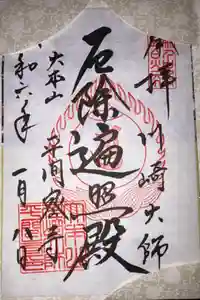 奉拝
川崎大師
厄除遍照殿
大本山
平間密寺
令和六年
一月八日